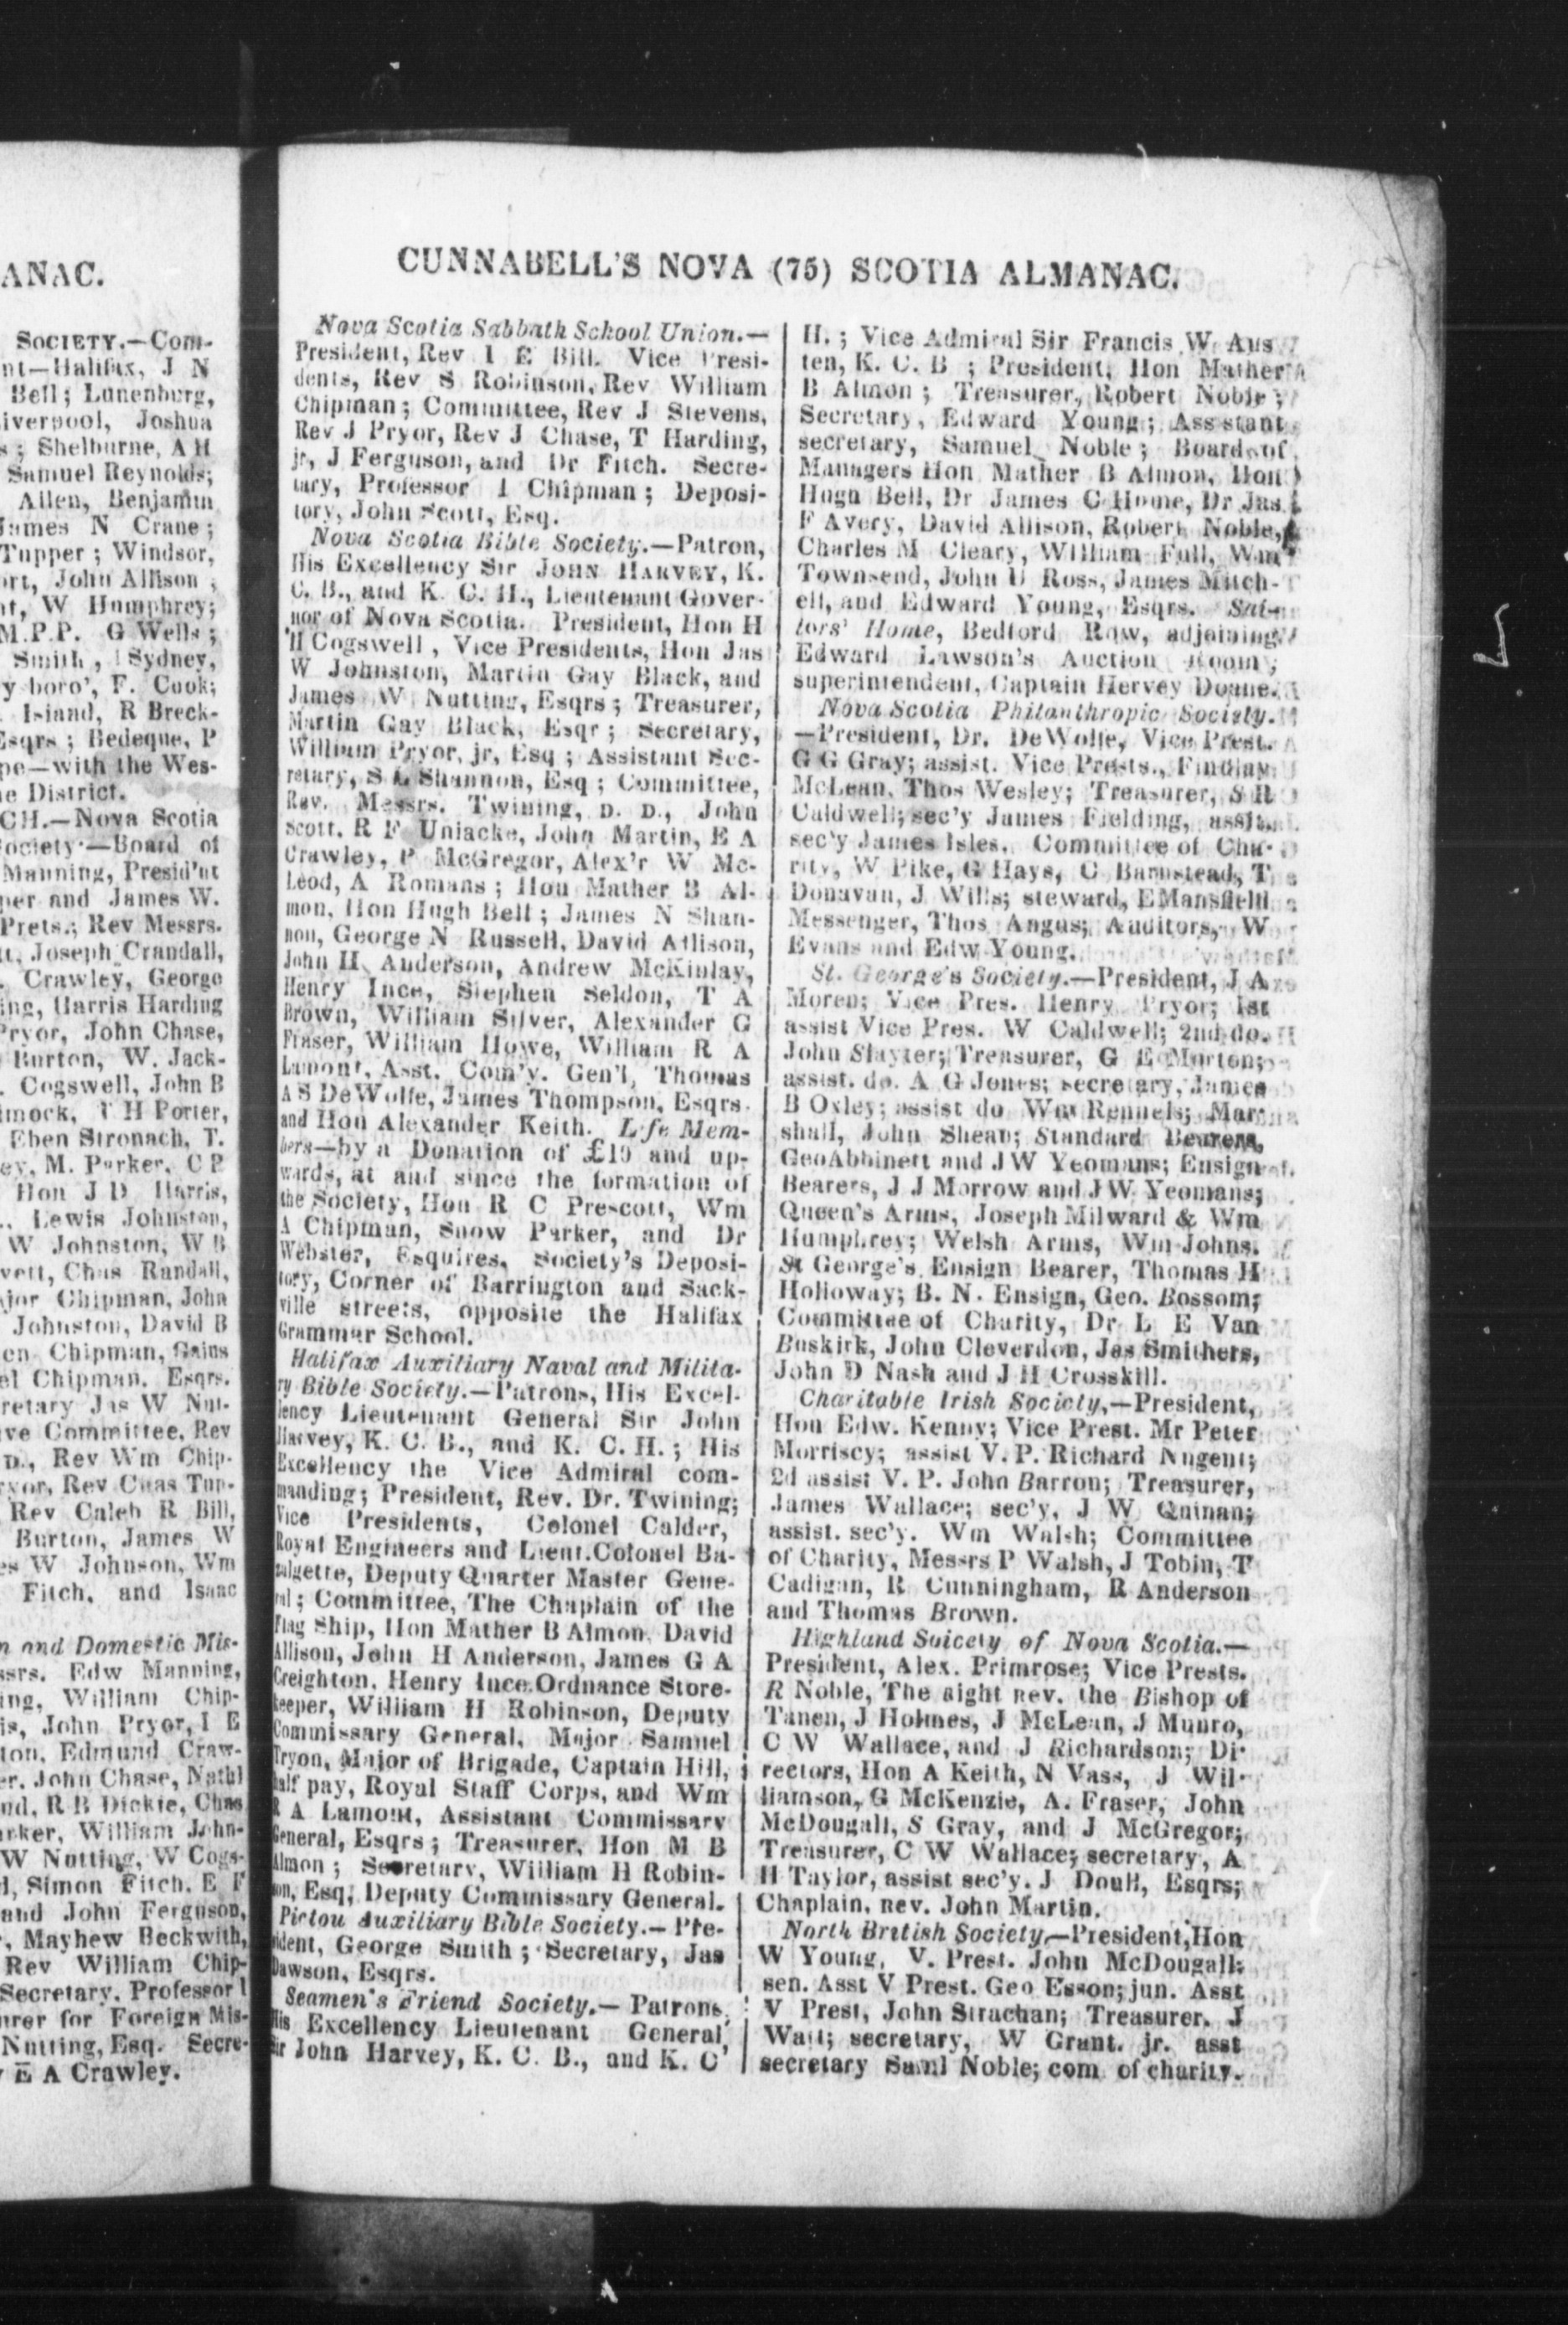 ANAC.
SOCIETY.—Com-
nt—Halifax, J N
Bell; Lunenburg,
iverpool, Joshua
s; Shelburne, A H
Samuel Reynolds;
Allen, Benjamin
James N Crane;
Tupper; Windsor,
ort, John Allison,
nt, W Humphrey;
M.P.P. G Wells;
Smith, Sydney,
y boro', F. Cook;
Island, R Breck-
Esqrs; Bedeque, P
pe—with the Wes-
ne District.
CH.—Nova Scotia
ociety—Board of
Manning, Presid'nt
per and James W.
Prets.; Rev Messrs.
tt, Joseph Crandall,
. Crawley, George
ing, Harris Harding
Pryor, John Chase,
Burton, W. Jack-
. Cogswell, John B
imock, T H Porter,
Eben Stronach, T.
ey, M. Parker, C P
Hon J D Harris,
., Lewis Johnston,
W Johnston, W B
vett, Chas Randall,
jor Chipman, John
Johnston, David B
en Chipman, Gains
el Chipman, Esqrs.
retary Jas W Nut-
ve Committee, Rev
D., Rev Wm Chip-
ryor, Rev Chas Tup-
Rev Caleb R Bill,
Burton, James W
es W Johnson, Wm
Fitch, and Isaac
n and Domestic Mis-
ssrs. Edw Manning,
ing, William Chip-
is, John Pryor, I E
ton, Edmund Craw-
er, John Chase, Nathl
nd, R B Dickie, Chas
arker, William John-
W Nutting, W Cogs-
l, Simon Fitch, E F
and John Ferguson,
, Mayhew Beckwith,
Rev William Chip-
Secretary, Professor I
urer for Foreign Mis-
Nutting, Esq. Secre-
E A Crawley.
CUNNABELL'S NOVA (75) SCOTIA ALMANAC.
Nova Scotia Sabbath School Union.—
President, Rev I E Bill. Vice Presi-
dents, Rev S Robinson, Rev William
Chipman; Committee, Rev J Stevens,
Rev J Pryor, Rev J Chase, T Harding,
jr, J Ferguson, and Dr Fitch. Secre-
tary, Professor I Chipman; Deposi-
tory, John Scott, Esq.
Nova Scotia Bible Society.—Patron,
His Excellency Sir JOHN HARVEY, K.
C. B., and K. C. H., Lieutenant Gover-
nor of Nova Scotia. President, Hon H
H Cogswell, Vice Presidents, Hon Jas
W Johnston, Martin Gay Black, and
James W Nutting, Esqrs; Treasurer,
Martin Gay Black, Esqr; Secretary,
William Pryor, jr, Esq; Assistant Sec-
retary, S L Shannon, Esq; Committee,
Rev. Messrs. Twining, D. D., John
Scott, R F Uniacke, John Martin, E A
Crawley, P McGregor, Alex'r W Mc-
Leod, A Romans; Hon Mather B Al-
mon, Hon Hugh Bell; James N Shan-
non, George N Russell, David Allison,
John H. Anderson, Andrew McKinlay,
Henry Ince, Stephen Seldon, T A
Brown, William Silver, Alexander G
Fraser, William Howe, William R A
Lamont, Asst. Com'y. Gen'l, Thomas
A S DeWolfe, James Thompson, Esqrs.
and Hon Alexander Keith. Life Mem-
bers—by a Donation of £10 and up-
wards, at and since the formation of
the Society, Hon R C Prescott, Wm
A Chipman, Snow Parker, and Dr
Webster, Esquires. Society's Deposi-
tory, Corner of Barrington and Sack-
ville streets, opposite the Halifax
Grammar School.
Halifax Auxiliary Naval and Milita-
ry Bible Society.—Patrons, His Excel-
lency Lieutenant General Sir John
Harvey, K. C. B., and K. C. H.; His
Excellency the Vice Admiral com-
manding; President, Rev. Dr. Twining;
Vice Presidents, Colonel Calder,
Royal Engineers and Lieut. Colonel Ba-
zalgette, Deputy Quarter Master Gene-
ral; Committee, The Chaplain of the
Flag Ship, Hon Mather B Almon, David
Allison, John H Anderson, James G A
Creighton, Henry Ince, Ordnance Store-
keeper, William H Robinson, Deputy
Commissary General, Major Samuel
Tryon, Major of Brigade, Captain Hill,
half pay, Royal Staff Corps, and Wm
R A Lamont, Assistant Commissary
General, Esqrs; Treasurer, Hon M B
Almon; Secretary, William H Robin-
son, Esq, Deputy Commissary General.
Pictou Auxiliary Bible Society.—Pre-
sident, George Smith; Secretary, Jas
Dawson, Esqrs.
Seamen's Friend Society.—Patrons,
His Excellency Lieutenant General
Sir John Harvey, K. C. B., and K. C
H.; Vice Admiral Sir Francis W Aus
ten, K. C. B; President, Hon Mather
B Almon; Treasurer, Robert Noble;
Secretary, Edward Young; Assistant
secretary, Samuel Noble; Board of
Managers Hon Mather B Almon, Hon
Hugh Bell, Dr James C Hume, Dr Jas
F Avery, David Allison, Robert Noble,
Charles M Cleary, William Full, Wm
Townsend, John U Ross, James Mitch-
ell, and Edward Young, Esqrs. Sai-
lors' Home, Bedford Row, adjoining
Edward Lawson's Auction Room;
superintendent, Captain Hervey Doane.
Nova Scotia Philanthropic Society.
—President, Dr. DeWolfe, Vice Prest.
G G Gray; assist. Vice Prests., Findlay
McLean, Thos Wesley; Treasurer, S R
Caldwell; sec'y James Fielding, assist.
sec'y James Isles. Committee of Cha-
rity, W Pike, G Hays, C Barnstead, T
Donavan, J Wills; steward, E Mansfield
Messenger, Thos Angus; Auditors, W
Evans and Edw Young.
St. George's Society.—President, J A
Moren; Vice Pres. Henry Pryor; 1st
assist Vice Pres. W Caldwell; 2nd do.
John Slayter; Treasurer, G E Morton;
assist. do. A G Jones; secretary, James
B Oxley; assist do Wm Rennels; Mar-
shall, John Shean; Standard Bearers,
Geo Abbinett and J W Yeomans; Ensign
Bearers, J J Morrow and J W Yeomans;
Queen's Arms, Joseph Milward & Wm
Humphrey; Welsh Arms, Wm Johns.
St George's Ensign Bearer, Thomas H
Holloway; B. N. Ensign, Geo. Bossom;
Committee of Charity, Dr L E Van
Buskirk, John Cleverdon, Jas Smithers,
John D Nash and J H Crosskill.
Charitable Irish Society,—President,
Hon Edw. Kenny; Vice Prest. Mr Peter
Morriscy; assist V. P. Richard Nugent;
2d assist V. P. John Barron; Treasurer,
James Wallace; sec'y, J W Quinan;
assist. sec'y. Wm Walsh; Committee
of Charity, Messrs P Walsh, J Tobin, T
Cadigan, R Cunningham, R Anderson
and Thomas Brown.
Highland Soicety of Nova Scotia.—
President, Alex. Primrose; Vice Prests.
R Noble, The Right Rev. the Bishop of
Tanen, J Holmes, J McLean, J Munro,
C W Wallace, and J Richardson; Di-
rectors, Hon A Keith, N Vass, J Wil-
liamson, G McKenzie, A. Fraser, John
McDougall, S Gray, and J McGregor;
Treasurer, C W Wallace; secretary, A
H Taylor, assist sec'y. J Doull, Esqrs;
Chaplain, Rev. John Martin.
North British Society,—President, Hon
W Young, V. Prest. John McDougall;
sen. Asst V Prest. Geo Esson; jun. Asst
V Prest, John Strachan; Treasurer, J
Watt; secretary, W Grant. jr. asst
secretary Saml Noble; com of charity.